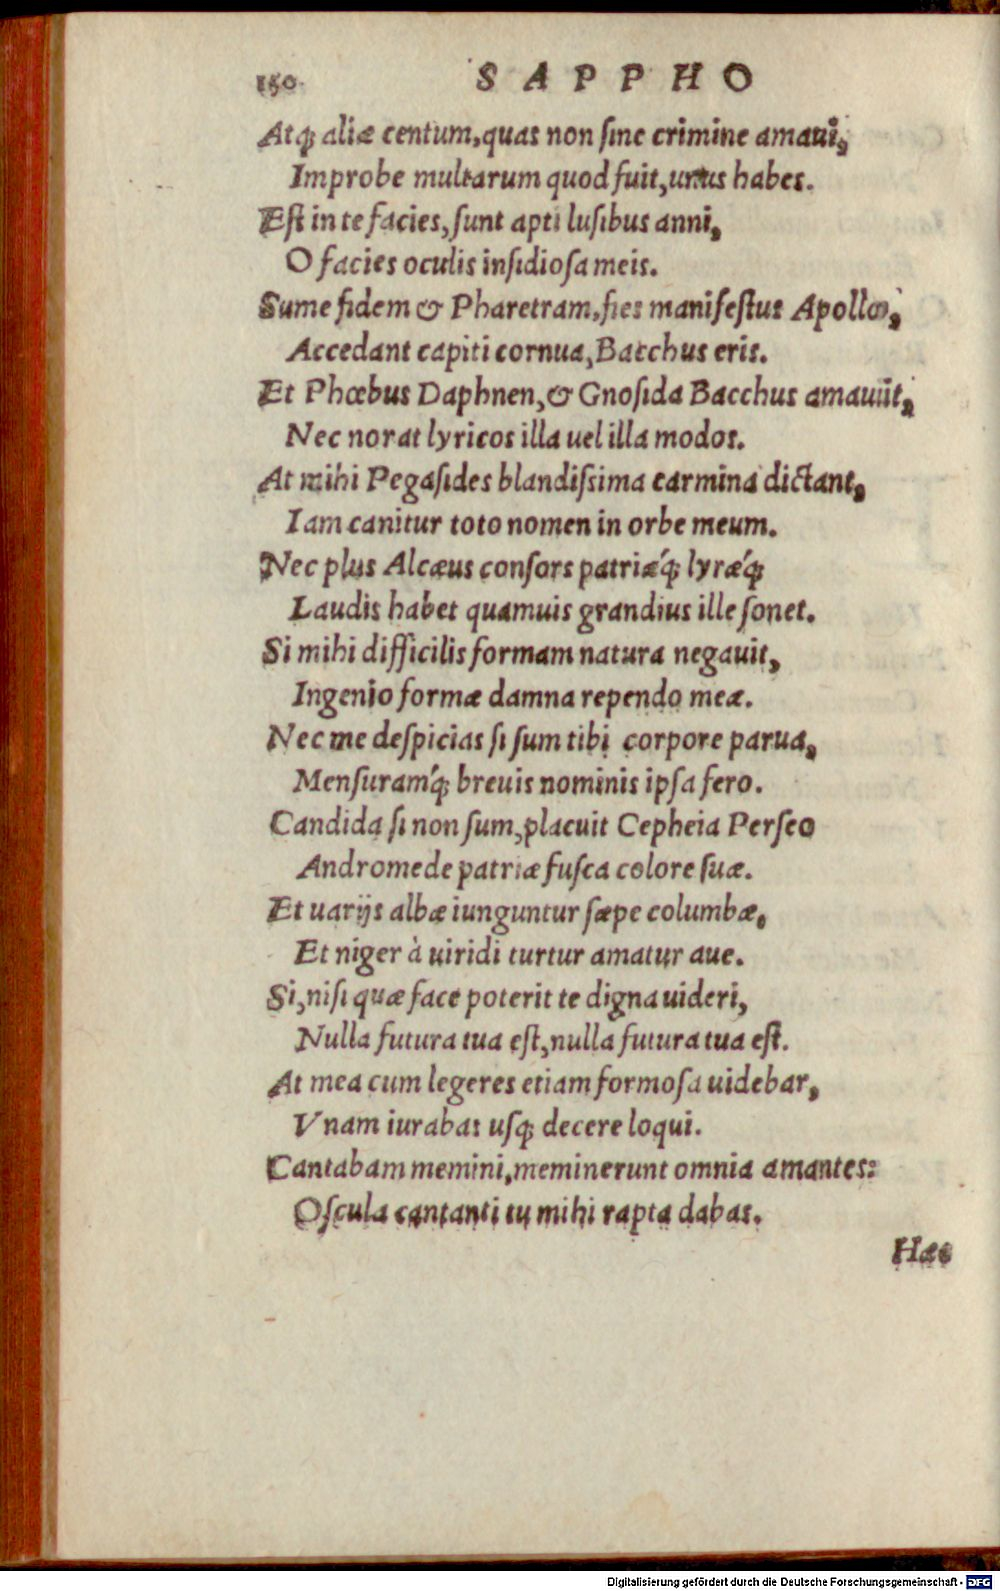 150 SAPPHO
Atq; aliæ centum, quas non ſine crimine amaui,
Improbe multarum quod fuit, unus habes.
Eſt in te facies, ſunt apti luſibus anni,
O facies oculis inſidioſa meis.
Sume fidem & Pharetram, fies manifeſtus Apollo,
Accedant capiti cornua, Bacchus eris.
Et Phœbus Daphnen, & Gnoſida Bacchus amauūt,
Nec norat lyricos illa uel illa modos.
At mihi Pegaſides blandiſsima carmina dictant,
Iam canitur toto nomen in orbe meum.
Nec plus Alcæus conſors patriæq́; lyræq́;
Laudis habet quamuis grandius ille ſonet.
Si mihi difficilis formam natura negauit,
Ingenio formæ damna rependo meæ.
Nec me deſpicias ſi ſum tibi corpore parua,
Menſuramq́; breuis nominis ipſa fero.
Candida ſi non ſum, placuit Cepheia Perſeo
Andromede patriæ fuſca colore ſuæ.
Et uarijs albæ iunguntur ſæpe columbæ,
Et niger à uiridi turtur amatur aue.
Si, niſi quæ face poterit te digna uideri,
Nulla futura tua eſt, nulla futura tua eſt.
At mea cum legeres etiam formoſa uidebar,
Vnam iurabas uſq; decere loqui.
Cantabam memini, meminerunt omnia amantes:
Oſcula cantanti tu mihi rapta dabas.
Hæc
Digitalisierung gefördert durch die Deutsche Forschungsgemeinschaft - DFG